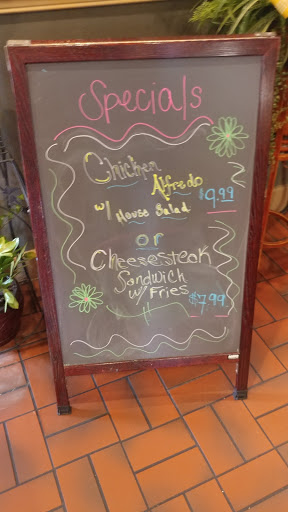 Specials
Chicken
Alfredo
w/ House Salad $9.99
or
Cheesesteak
Sandwich
w/ Fries $7.99